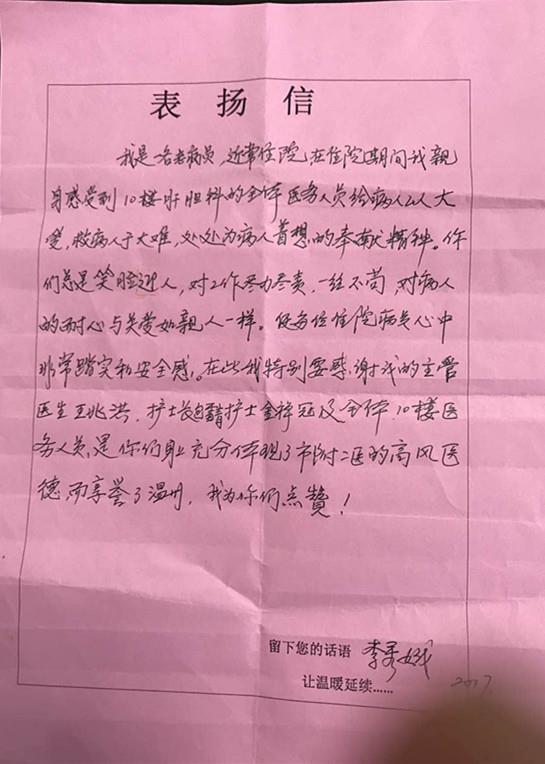 表扬信
我是一名老病员，近常住院，在住院期间我亲
身感受到10楼肝胆科的全体医务人员给病人以大
爱，救病人于大难，处处为病人着想的奉献精神。你
们总是笑脸迎人，对工作尽力尽责，一丝不苟，对病人
的耐心与关爱如亲人一样。使各位住院病员心中
非常踏实和安全感。在此我特别要感谢我的主管
医生王兆洪，护士长 护士金梓冠及全体10楼医
务人员，是你们身上充分体现了市附二医的高风医
德，而享誉了温州，我为你们点赞！
留下您的话语 李秀
让温暖延续…… 2017